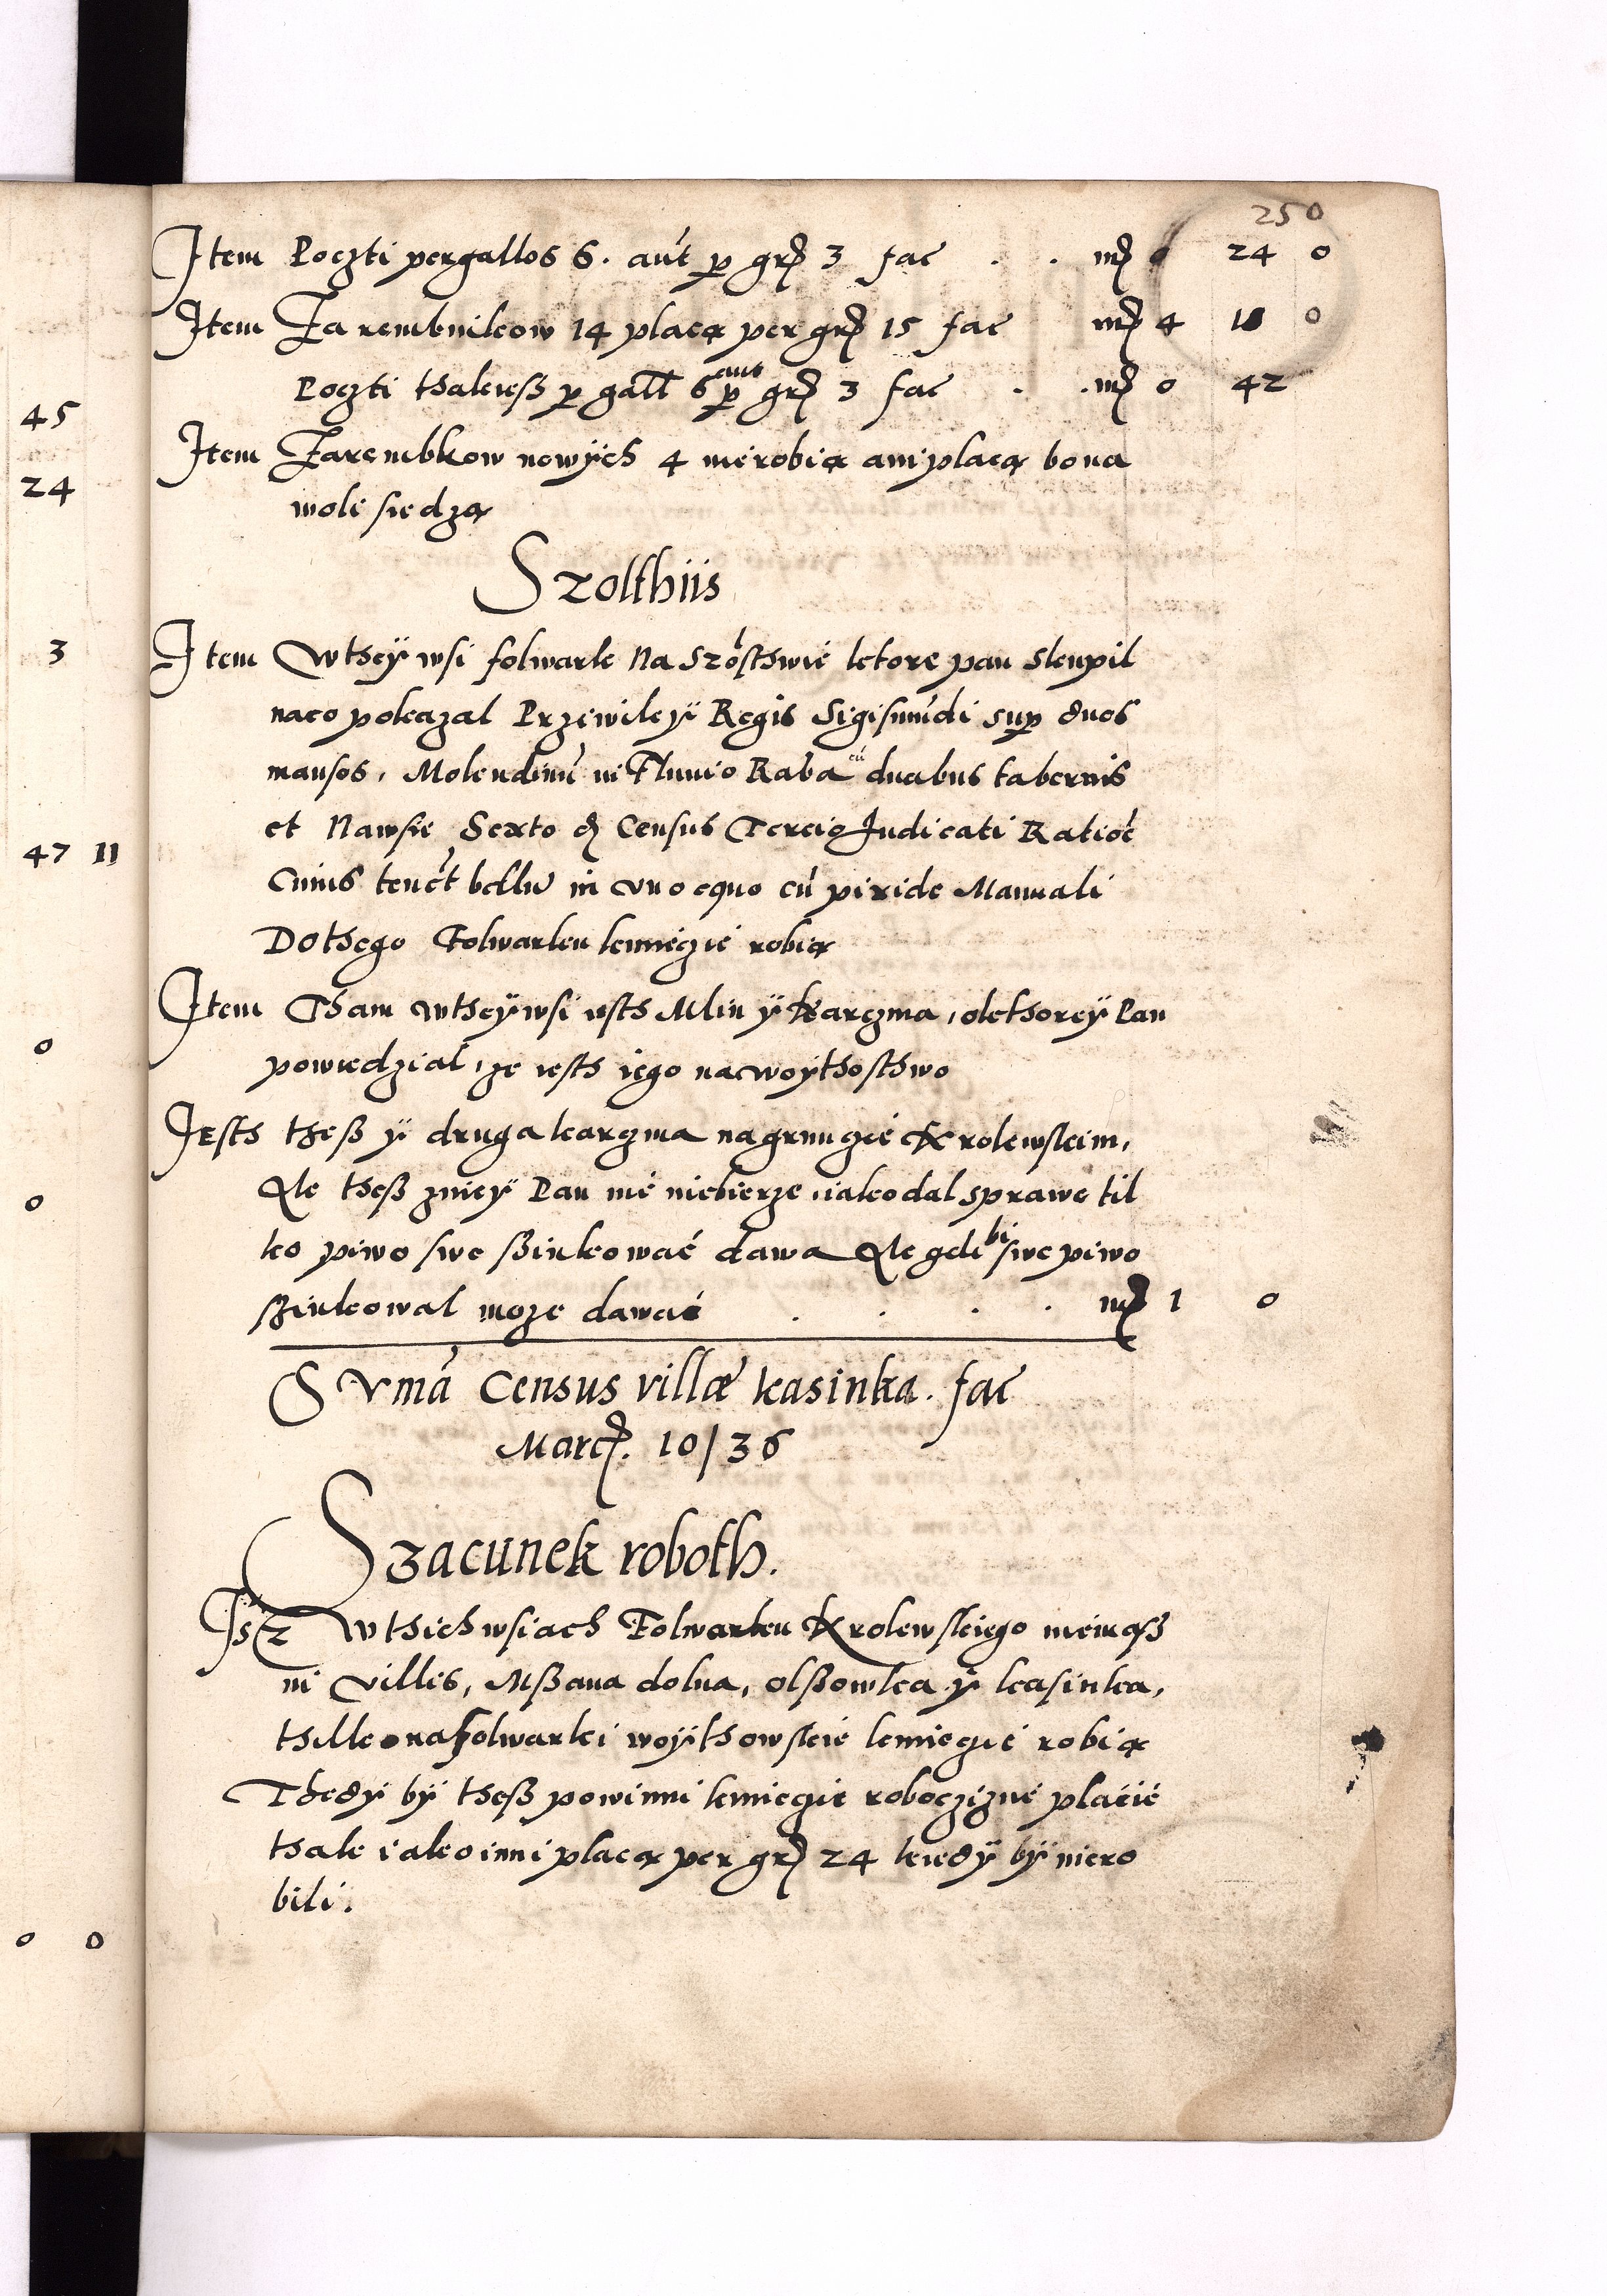 250
Item Poczti per gallos 6. aut per grß 3 fac . . mß 0 24 0
Item Zarembnikow 14 placą per grß 15 fac mß 4 18 0
Poczti thakiesß per gall 6 aut per grß 3 fac . . mß 0 42
45
Item Zarembkow nowÿch 4 nierobią ani placą bona
24
woli siedzą
Szolthiis
3
Item Wtheÿ wsi folwark Na Szolsthwie ktore pan Slupil
naco pokazal Przewileÿ Regis Sigismundi sup duos
mansos, Molendinu in Fluuio Raba cu duabus tabernis
et Nawsie Sexto Census Tercio Iudicati Ratioe
47 11
Cuius tenet bellu in vno equo cu pixide Manuali
Dothego Folwarku kmiéczié robią
Item Tham wtheÿ wsi iesth Mlin ÿ karczma, oktoreÿ Pan
0
powiedzial, ze iesth iego nacwoÿthosthwo
Iesth thesß ÿ druga karczma nagrunczie Krolewskim,
Ale thesß znieÿ Pan nié niebierze, iako dal sprawe til
0
ko piwo swe ßinkować dawa Ale gdi bi swe piwo
ßinkowal moze dawać . . . . mß 1 0
Suma Census villæ kasinka. fac
Marcß. 10/36
Szacunek roboth.
Isz Wthich wsiach Folwarku Krolewskiego niemasß
in Villis, Mßana dolna, olßowka ÿ kasinka,
thilko na folwarki woÿthowskié kmieczié robią
Thedÿ bÿ thesß powinni kmieczie roboczizné placić
thak iako inni placą per grß 24 kiedÿ bÿ niero
bili.
0 0